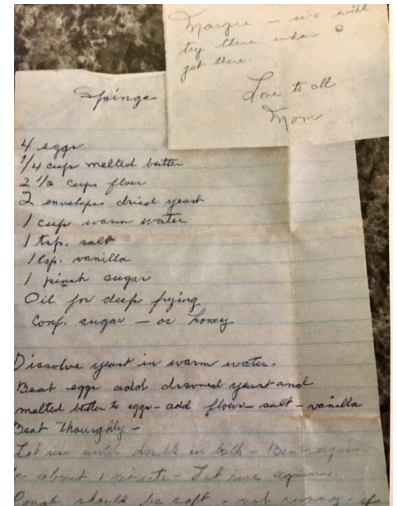 Margie — we will
try these when I
get there.
Love to all
Mom
Spinge
4 eggs
1/4 cup melted butter
2 1/2 cups flour
2 envelopes dried yeast
1 cup warm water
1 tsp. salt
1 tsp. vanilla
1 pinch sugar
Oil for deep frying
Conf. sugar — or honey
Dissolve yeast in warm water.
Beat eggs add dissolved yeast and
melted butter to eggs - add flour - salt - vanilla
Beat thoroughly -
Let rise until double in bulk - Beat again
for about 1 minute - Let rise again.
Dough should be soft - not runny - if